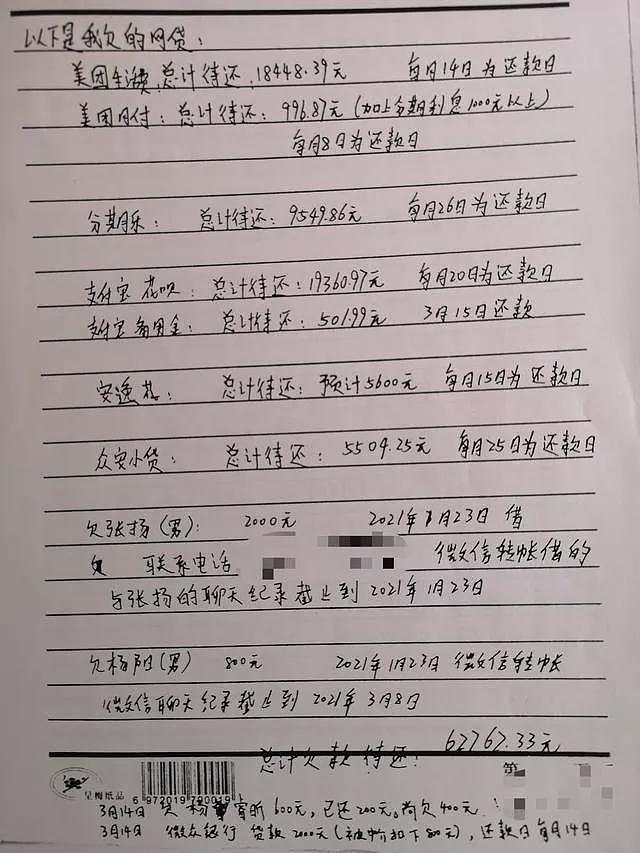 以下是我欠的网贷:
美团生活费:总计待还:18448.39元 每月14日为还款日
美团月付:总计待还:996.87元(加上分期利息1000元以上)
每月8日为还款日
分期乐: 总计待还:9549.86元 每月26日为还款日
支付宝花呗:总计待还:19360.97元 每月20日为还款日
支付宝备用金:总计待还:501.99元 3月15日还款
安逸花: 总计待还:预计5600元 每月15日为还款日
众安小贷: 总计待还:5504.25元 每月25日为还款日
欠张扬(男): 2000元 2021年1月23日借
联系电话 微信转帐借的
与张扬的聊天纪录截止到2021年1月23日
欠杨阳(男) 800元 2021年1月23日 微信转帐
微信聊天纪录截止到2021年3月8日
总计欠款待还:62762.33元
第
呈梅纸品
6 972019 790019
3月14日 欠杨 宵昕600元,已还200元,尚欠400元.
3月14日 微众银行 贷款2000元(被 扣下800元),还款日每月14日